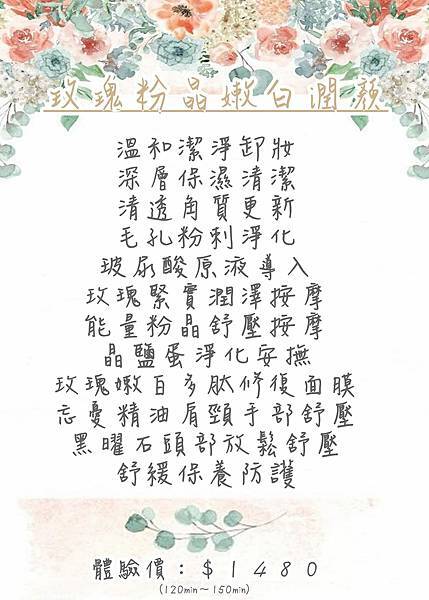 玫瑰粉晶嫩白潤顏
溫和潔淨卸妝
深層保濕清潔
清透角質更新
毛孔粉刺淨化
玻尿酸原液導入
玫瑰緊實潤澤按摩
能量粉晶舒壓按摩
晶鹽蛋淨化安撫
玫瑰嫩白多肽修復面膜
忘憂精油肩頸手部舒壓
黑曜石頭部放鬆舒壓
舒緩保養防護
體驗價：＄１４８０
(120min～150min)